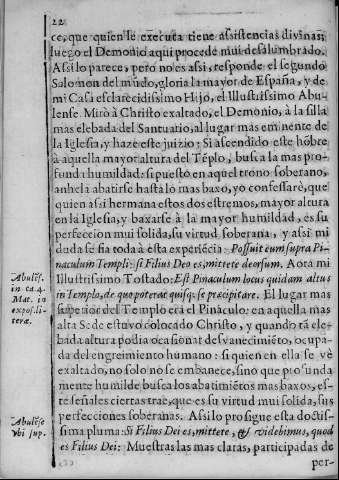 22
ce, que quien le executa tiene assistencias divinas;
luego el Demonio aqui procede mui desalumbrado.
Assi lo parece, pero no es assi, responde el segundo
Salomon del mūdo, gloria la mayor de España, y de
mi Casa esclarecidissimo Hijo, el Illustrissimo Abu-
lense. Mirò à Christo exaltado, el Demonio, à la silla
mas elebada del Santuario, al lugar mas eminente de
la Iglesia, y haze este juizio: Si ascendido este hōbre
à aquella mayor altura del Tēplo, busca la mas pro-
funda humildad: si puesto en aquel trono soberano,
anhela abatirse hasta lo mas baxo, yo confessarè, que
quien assi hermana estos dos estremos, mayor altura
en la Iglesia, y baxarse à la mayor humildad, es su
perfeccion mui solida, su virtud soberana, y assi mi
duda se fia toda à esta experiēcia: Possuit eum supra Pi-
naculum Templi: si Filius Deo es, mittete deorsum. Aora mi
Illustrissimo Tostado: Est Pinaculum locus quidam altus
in Templo, de quo poterat quisq; se præcipitare. El lugar mas
superior del Templo era el Pinaculo: en aquella mas
alta Sede estuvo colocado Christo, y quando tā ele-
bada altura podia ocasionar desvanecimiēto, ocupa-
da del engreimiento humano: si quien en ella se vè
exaltado, no solo no se embanece, sino que profunda
mente humilde busca los abatimiētos mas baxos, es-
tas señales ciertas trae, que es su virtud mui solida, sus
perfecciones soberanas. Assi lo prosigue esta doctis-
sima pluma: Si Filius Dei es, mittete, & videbimus, quod
es Filius Dei: Muestras las mas claras, participadas de
per-
Abulēs.
in ca 4.
Mat. in
expos. li-
teræ.
Abulēse
vbi sup.